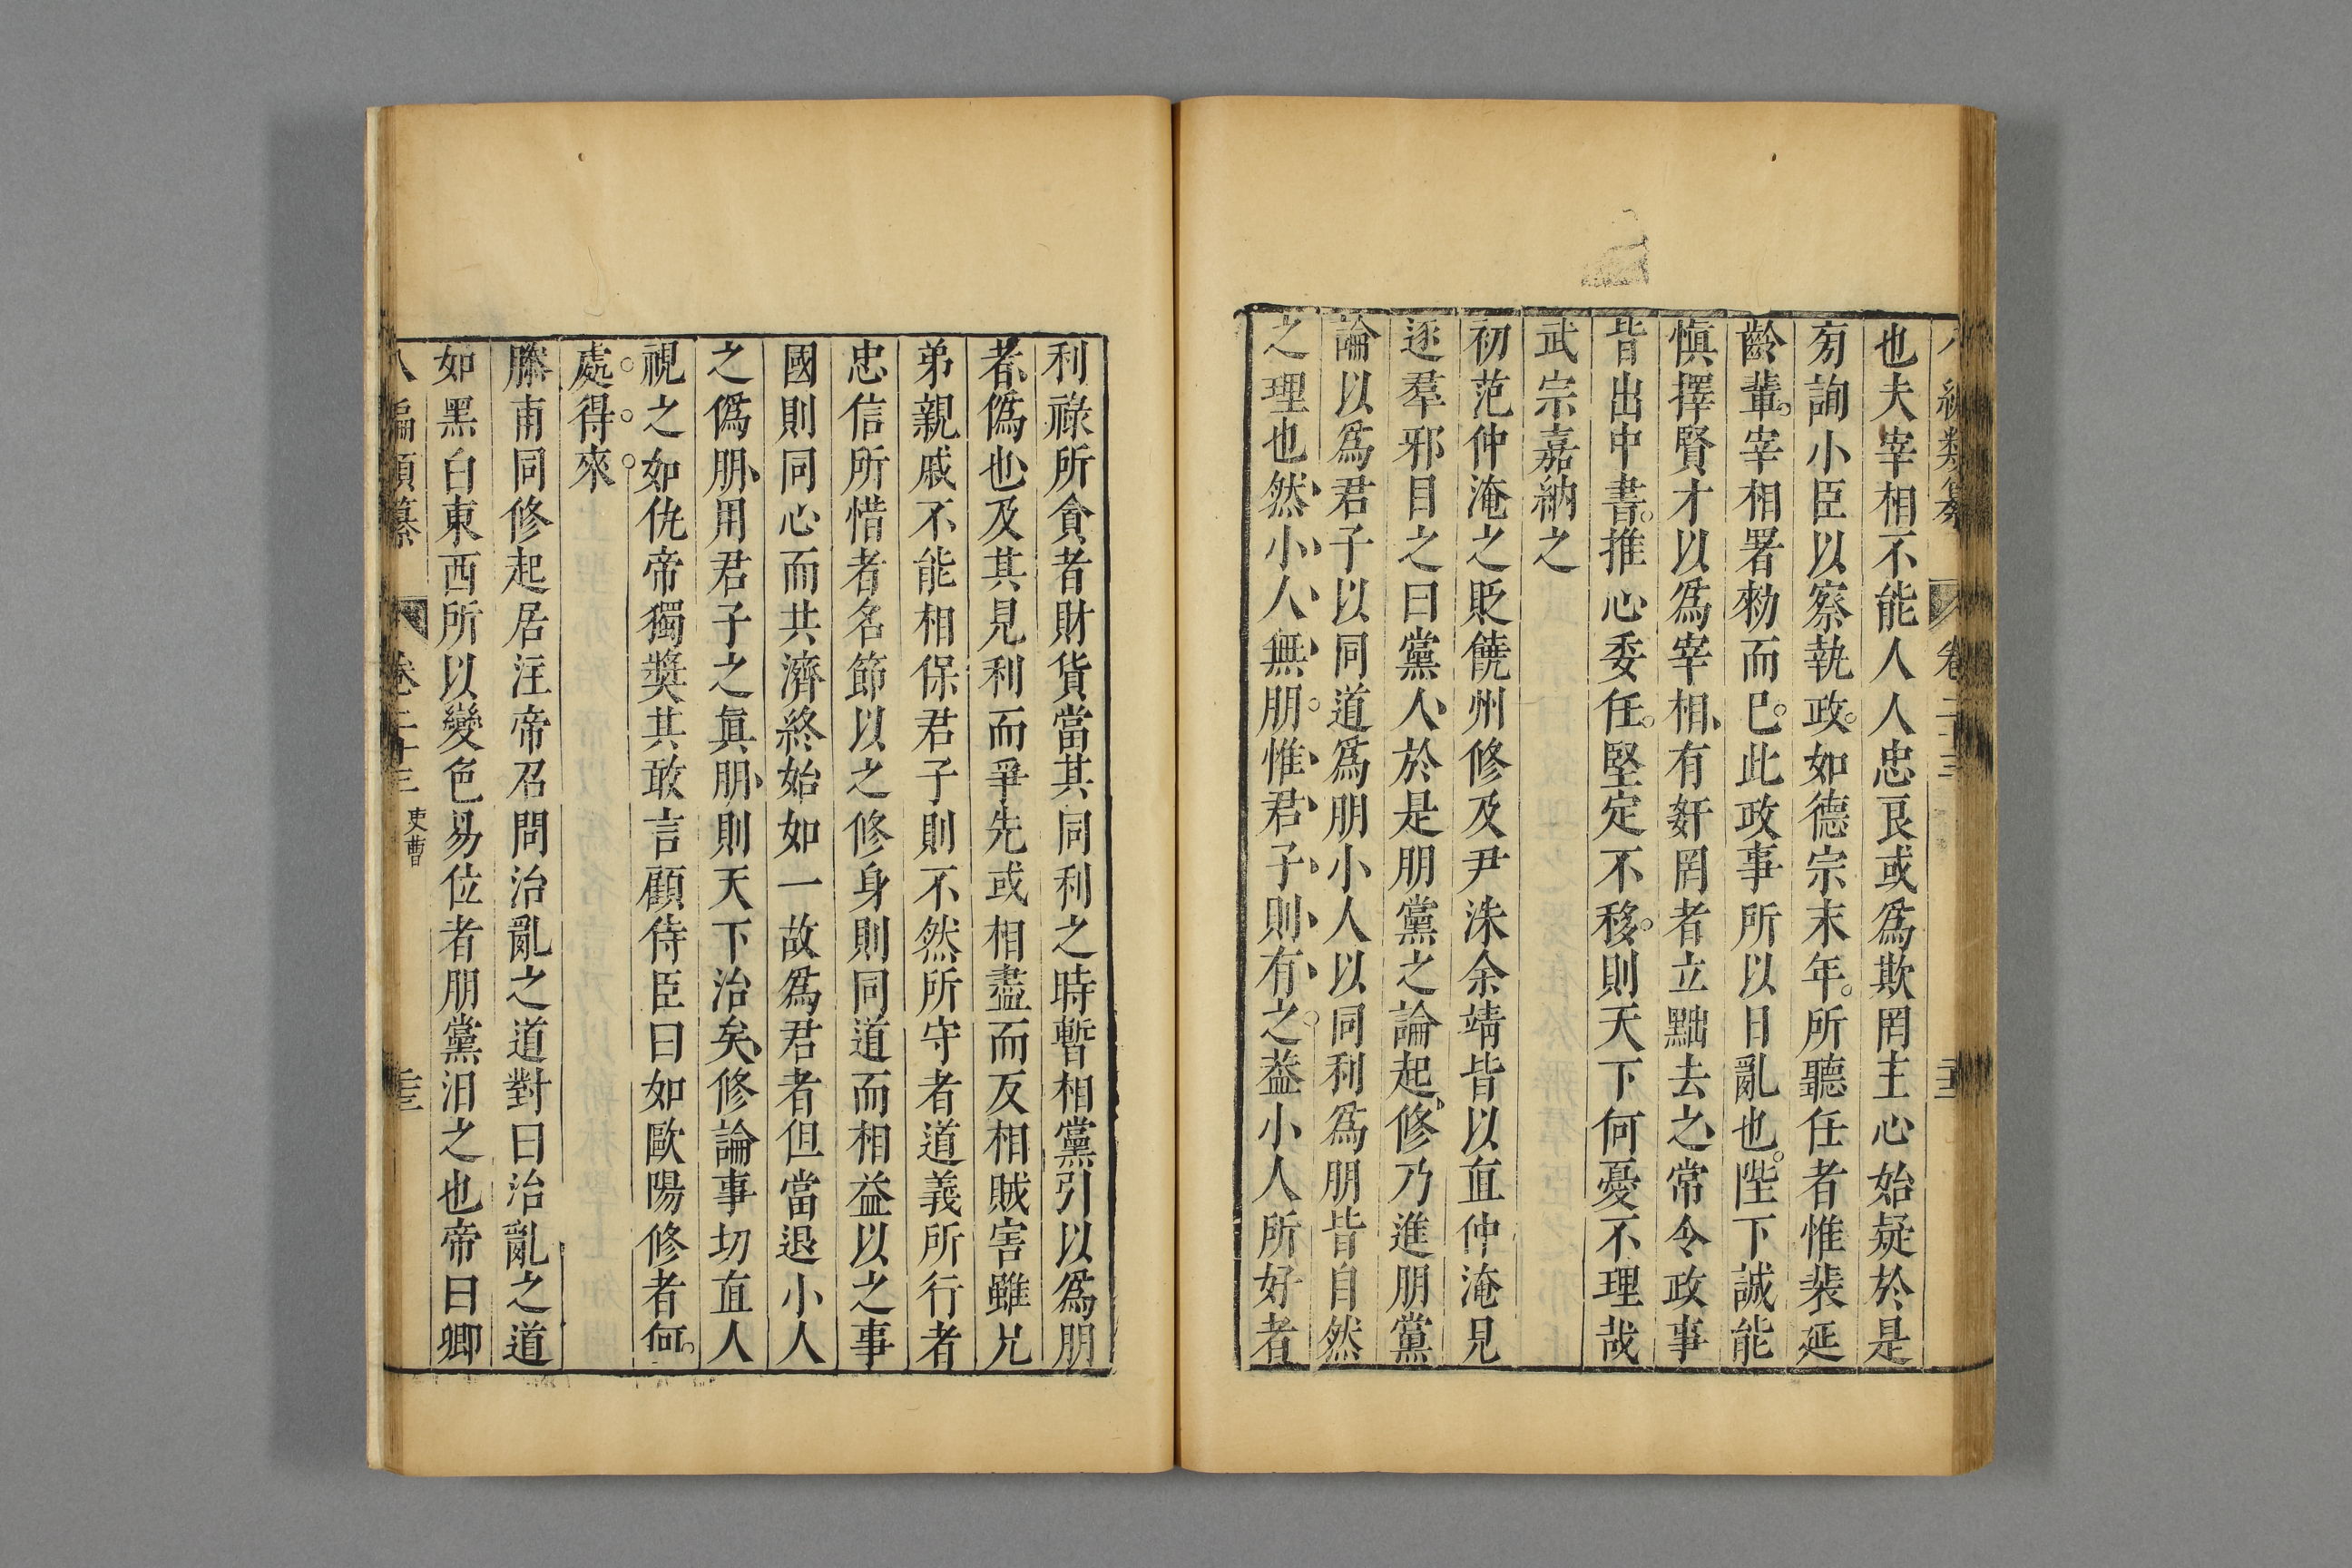 八編類纂 卷二十三
也夫宰相不能人人忠良或爲欺罔主心始疑於是
旁詢小臣以察執政如德宗末年所聽任者惟裴延
齡輩宰相署勑而巳此政事所以日亂也陛下誠能
愼擇賢才以爲宰相有姧罔者立黜去之常令政事
皆出中書推心委任堅定不移則天下何憂不理哉
武宗嘉納之
初范仲淹之貶饒州修及尹洙余靖皆以直仲淹見
逐羣邪目之曰黨人於是朋黨之論起修乃進朋黨
論以爲君子以同道爲朋小人以同利爲朋皆自然
之理也然小人無朋惟君子則有之葢小人所好者
利祿所貪者財貨當其同利之時暫相黨引以爲朋
者僞也及其見利而爭先或相盡而反相賊害雖兄
弟親戚不能相保君子則不然所守者道義所行者
忠信所惜者名節以之修身則同道而相益以之事
國則同心而共濟終始如一故爲君者但當退小人
之僞朋用君子之眞朋則天下治矣修論事切直人
視之如仇帝獨獎其敢言顧侍臣曰如歐陽修者何
處得來
滕甫同修起居注帝召問治亂之道對曰治亂之道
如黑白東西所以變色易位者朋黨汨之也帝曰卿
八編類纂 卷二十三 吏曹